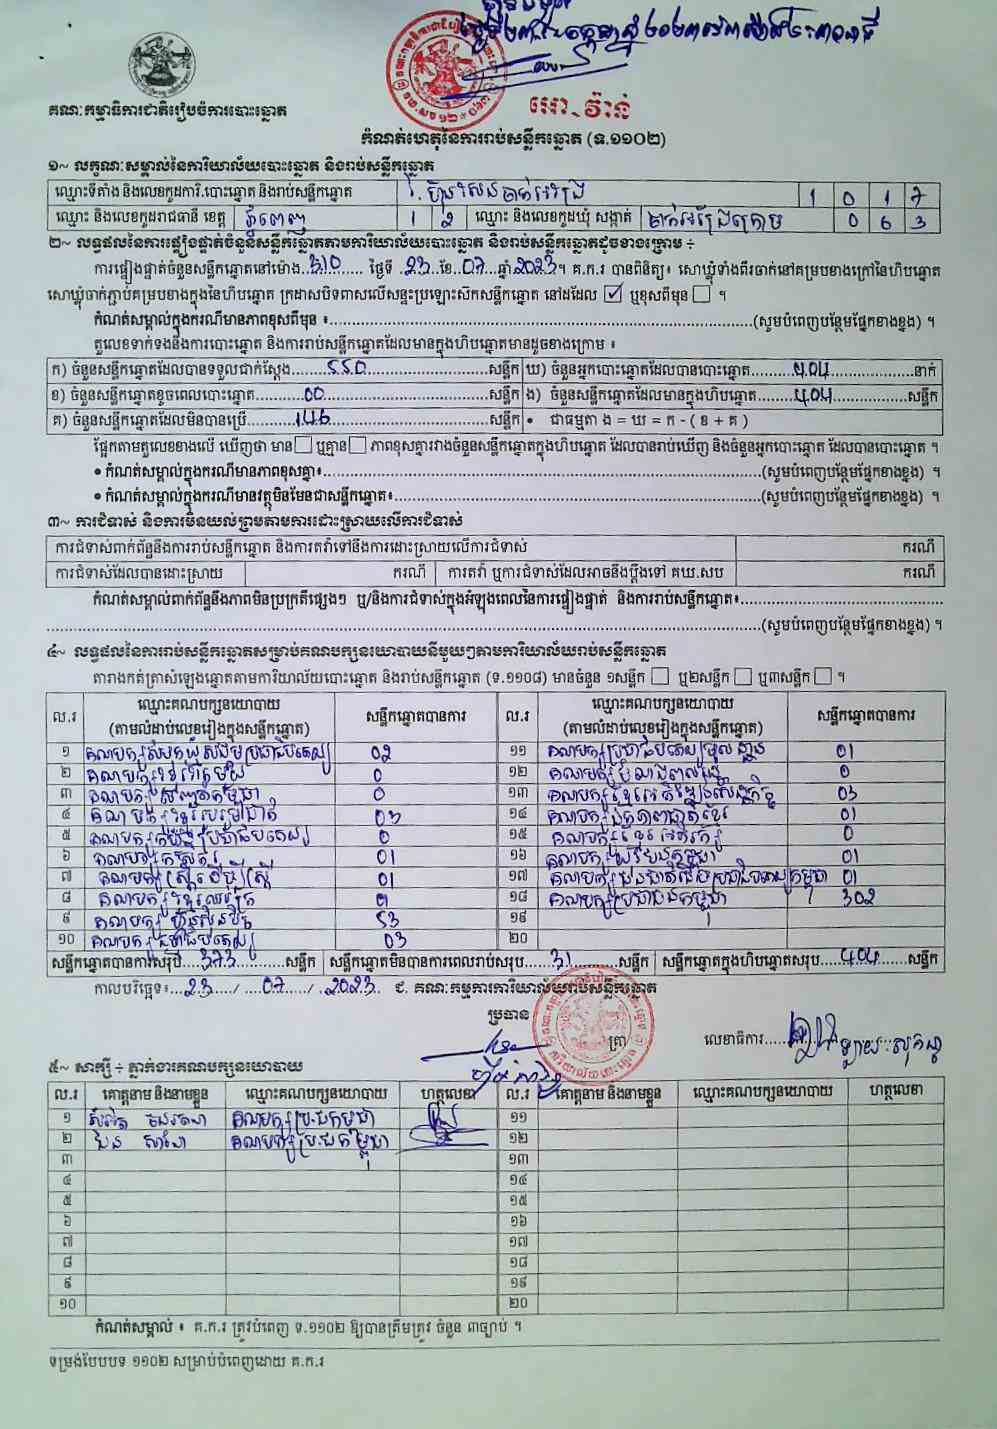 គណៈកម្មាធិការជាតិរៀបចំការបោះឆ្នោត
អោ វ៉ាន់
កំណត់ហេតុនៃការរាប់សន្លឹកឆ្នោត (ទ.១១០២)
១~ លក្ខណៈសម្គាល់នៃការិយាល័យបោះឆ្នោត និងរាប់សន្លឹកឆ្នោត
ឈ្មោះទីតាំង និងលេខកូដការិ.បោះឆ្នោត និងរាប់សន្លឹកឆ្នោត 1 0 1 7
ឈ្មោះ និងលេខកូដរាជធានី ខេត្ត ភ្នំពេញ 1 2 ឈ្មោះ និងលេខកូដឃុំ សង្កាត់ ចាក់អង្រែក្រោម 0 6 3
២~ លទ្ធផលនៃការផ្ទៀងផ្ទាត់ចំនួនសន្លឹកឆ្នោតតាមការិយាល័យបោះឆ្នោត និងរាប់សន្លឹកឆ្នោតដូចខាងក្រោម ÷
ការផ្ទៀងផ្ទាត់ចំនួនសន្លឹកឆ្នោតនៅម៉ោង..310.. ថ្ងៃទី 23 ខែ 07 ឆ្នាំ 2023។ គ.ក.រ បានពិនិត្យ៖ សោឃ្លុំទាំងពីរចាក់នៅគម្របខាងក្រៅនៃហិបឆ្នោត
សោឃ្លុំចាក់ភ្ជាប់គម្របខាងក្នុងនៃហិបឆ្នោត ក្រដាសបិទពាសលើសន្ទះប្រឡោះស៊កសន្លឹកឆ្នោត នៅដដែល ☑ ឬខុសពីមុន ☐ ។
កំណត់សម្គាល់ក្នុងករណីមានភាពខុសពីមុន ៖ (សូមបំពេញបន្ថែមផ្នែកខាងខ្នង) ។
តួលេខទាក់ទងនឹងការបោះឆ្នោត និងការរាប់សន្លឹកឆ្នោតដែលមានក្នុងហិបឆ្នោតមានដូចខាងក្រោម ៖
ក) ចំនួនសន្លឹកឆ្នោតដែលបានទទួលជាក់ស្តែង 550 សន្លឹក ឃ) ចំនួនអ្នកបោះឆ្នោតដែលបានបោះឆ្នោត 404 នាក់
ខ) ចំនួនសន្លឹកឆ្នោតខូចពេលបោះឆ្នោត 00 សន្លឹក ង) ចំនួនសន្លឹកឆ្នោតដែលមានក្នុងហិបឆ្នោត 404 សន្លឹក
គ) ចំនួនសន្លឹកឆ្នោតដែលមិនបានប្រើ 146 សន្លឹក • ជាធម្មតា ង = ឃ = ក - ( ខ + គ )
ផ្អែកតាមតួលេខខាងលើ ឃើញថា មាន ☐ ឬគ្មាន ☐ ភាពខុសគ្នារវាងចំនួនសន្លឹកឆ្នោតក្នុងហិបឆ្នោត ដែលបានរាប់ឃើញ និងចំនួនអ្នកបោះឆ្នោត ដែលបានបោះឆ្នោត ។
• កំណត់សម្គាល់ក្នុងករណីមានភាពខុសគ្នា៖ (សូមបំពេញបន្ថែមផ្នែកខាងខ្នង) ។
• កំណត់សម្គាល់ក្នុងករណីមានវត្ថុមិនមែនជាសន្លឹកឆ្នោត៖ (សូមបំពេញបន្ថែមផ្នែកខាងខ្នង) ។
៣~ ការជំទាស់ និងការមិនយល់ព្រមតាមការដោះស្រាយលើការជំទាស់
ការជំទាស់ពាក់ព័ន្ធនឹងការរាប់សន្លឹកឆ្នោត និងការតវ៉ាទៅនឹងការដោះស្រាយលើការជំទាស់ ករណី
ការជំទាស់ដែលបានដោះស្រាយ ករណី ការតវ៉ា ឬការជំទាស់ដែលអាចនឹងប្តឹងទៅ គឃ.សប ករណី
កំណត់សម្គាល់ពាក់ព័ន្ធនឹងភាពមិនប្រក្រតីផ្សេងៗ ឬ/និងការជំទាស់ក្នុងអំឡុងពេលនៃការផ្ទៀងផ្ទាត់ និងការរាប់សន្លឹកឆ្នោត៖
(សូមបំពេញបន្ថែមផ្នែកខាងខ្នង) ។
៤~ លទ្ធផលនៃការរាប់សន្លឹកឆ្នោតសម្រាប់គណបក្សនយោបាយនីមួយៗតាមការិយាល័យរាប់សន្លឹកឆ្នោត
តារាងកត់ត្រាសំឡេងឆ្នោតតាមការិយាល័យបោះឆ្នោត និងរាប់សន្លឹកឆ្នោត (ទ.១១០៨) មានចំនួន ១សន្លឹក ☐ ឬ២សន្លឹក ☐ ឬ៣សន្លឹក ☐ ។
ល.រ ឈ្មោះគណបក្សនយោបាយ (តាមលំដាប់លេខរៀងក្នុងសន្លឹកឆ្នោត) សន្លឹកឆ្នោតបានការ ល.រ ឈ្មោះគណបក្សនយោបាយ (តាមលំដាប់លេខរៀងក្នុងសន្លឹកឆ្នោត) សន្លឹកឆ្នោតបានការ
១ គណបក្សសំបុកឃ្មុំសង្គមប្រជាធិបតេយ្យ 02 ១១ គណបក្សប្រជាធិបតេយ្យមូលដ្ឋាន 01
២ គណបក្សខ្មែររួបរួម 0 ១២ គណបក្ស 0
៣ គណបក្ស កម្ពុជា 0 ១៣ គណបក្សខ្មែរអភិវឌ្ឍន៍សេដ្ឋកិច្ច 03
៤ គណបក្សខ្មែររួបរួមជាតិ 03 ១៤ គណបក្សឯកភាពជាតិខ្មែរ 01
៥ គណបក្សកម្លាំងប្រជាធិបតេយ្យ 0 ១៥ គណបក្សខ្មែរអភិរក្ស 0
៦ គណបក្សកសិករ 01 ១៦ គណបក្សយុវជនកម្ពុជា 01
៧ គណបក្សស្ត្រីដើម្បីស្ត្រី 01 ១៧ គណបក្ស កម្ពុជា 01
៨ គណបក្សខ្មែរឈប់ក្រ 0 ១៨ គណបក្សប្រជាជនកម្ពុជា 302
៩ គណបក្សហ្វ៊ុនស៊ិនប៉ិច 53 ១៩
១០ គណបក្សធម្មាធិបតេយ្យ 03 ២០
សន្លឹកឆ្នោតបានការសរុប 373 សន្លឹក សន្លឹកឆ្នោតមិនបានការពេលរាប់សរុប 31 សន្លឹក សន្លឹកឆ្នោតក្នុងហិបឆ្នោតសរុប 404 សន្លឹក
កាលបរិច្ឆេទ៖ 23 / 07 / 2023 ជ. គណៈកម្មការការិយាល័យរាប់សន្លឹកឆ្នោត
ប្រធាន
ត្រា លេខាធិការ
៥~ សាក្សី ÷ ភ្នាក់ងារគណបក្សនយោបាយ
ល.រ គោត្តនាម និងនាមខ្លួន ឈ្មោះគណបក្សនយោបាយ ហត្ថលេខា ល.រ គោត្តនាម និងនាមខ្លួន ឈ្មោះគណបក្សនយោបាយ ហត្ថលេខា
១ គណបក្សប្រជាជនកម្ពុជា ១១
២ គណបក្សប្រជាជនកម្ពុជា ១២
៣ ១៣
៤ ១៤
៥ ១៥
៦ ១៦
៧ ១៧
៨ ១៨
៩ ១៩
១០ ២០
កំណត់សម្គាល់ ៖ គ.ក.រ ត្រូវបំពេញ ទ.១១០២ ឱ្យបានត្រឹមត្រូវ ចំនួន ៣ច្បាប់ ។
ទម្រង់បែបបទ ១១០២ សម្រាប់បំពេញដោយ គ.ក.រ